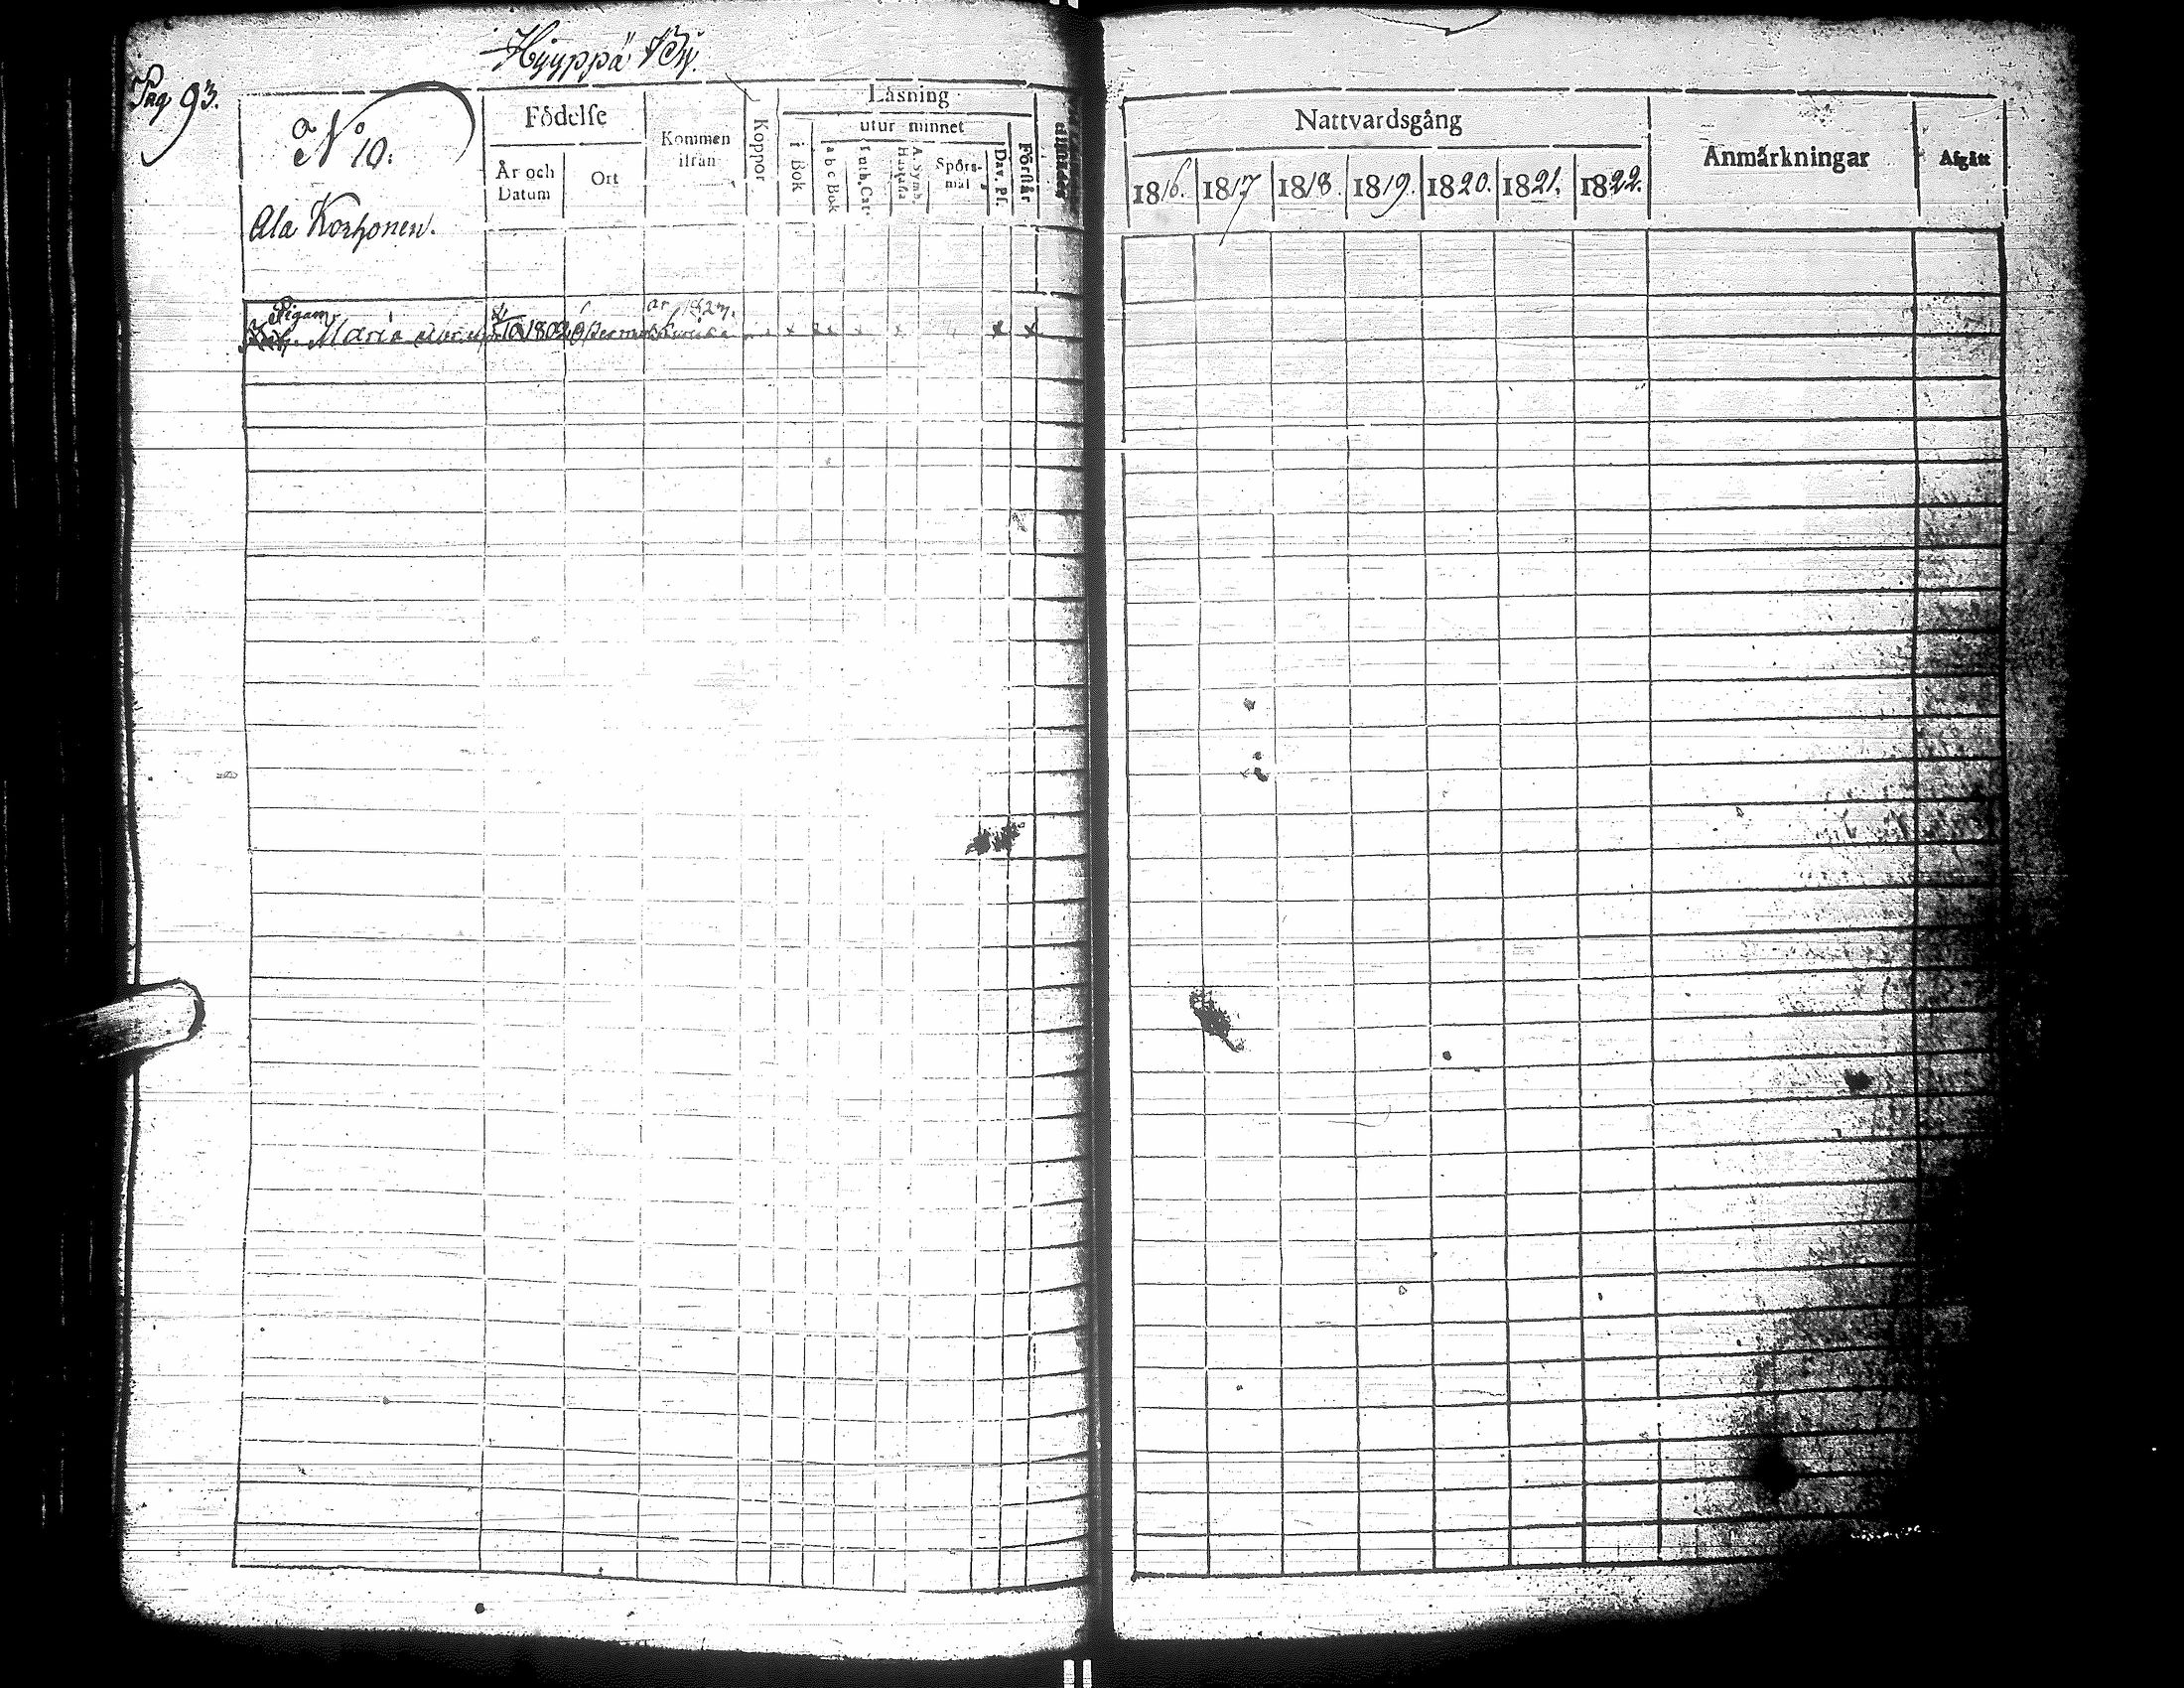 Hyyppä By.
Pag 93.
No 10.
Ala Korhonen.
Födelse
År och Datum
Ort
Kommen ifrån
Koppor
Läsning
i Bok
utur minnet
a b c Bok
Luth. Cat.
A. Symb. Hustafla
Spörsmål
Dav. Ps.
Förstår
Nattvardsgång
1816.
1817
1818.
1819.
1820.
1821.
1822.
Anmärkningar
Afgått
Pigan
år 1827.
Maria
1802